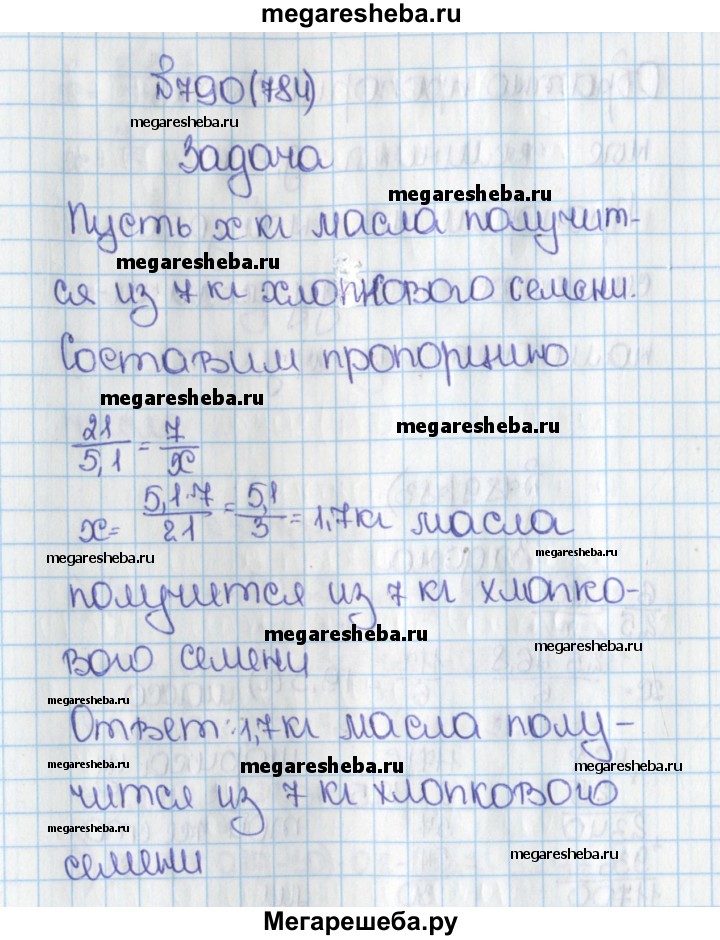 megaresheba.ru
№790(784)
megaresheba.ru
Задача
megaresheba.ru
Пусть x кг масла получит-
megaresheba.ru
ся из 7 кг хлопнового семени.
Составим пропорцию
megaresheba.ru
megaresheba.ru
21/5,1 = 7/x
x = 5,1·7/21 = 5,1/3 = 1,7кг масла
megaresheba.ru
megaresheba.ru
получится из 7 кг хлопко-
megaresheba.ru
megaresheba.ru
вого семени
megaresheba.ru
Ответ: 1,7кг масла полу-
megaresheba.ru
megaresheba.ru
megaresheba.ru
чится из 7 кг хлопкового
megaresheba.ru
megaresheba.ru
семени
Мегарешеба.ру